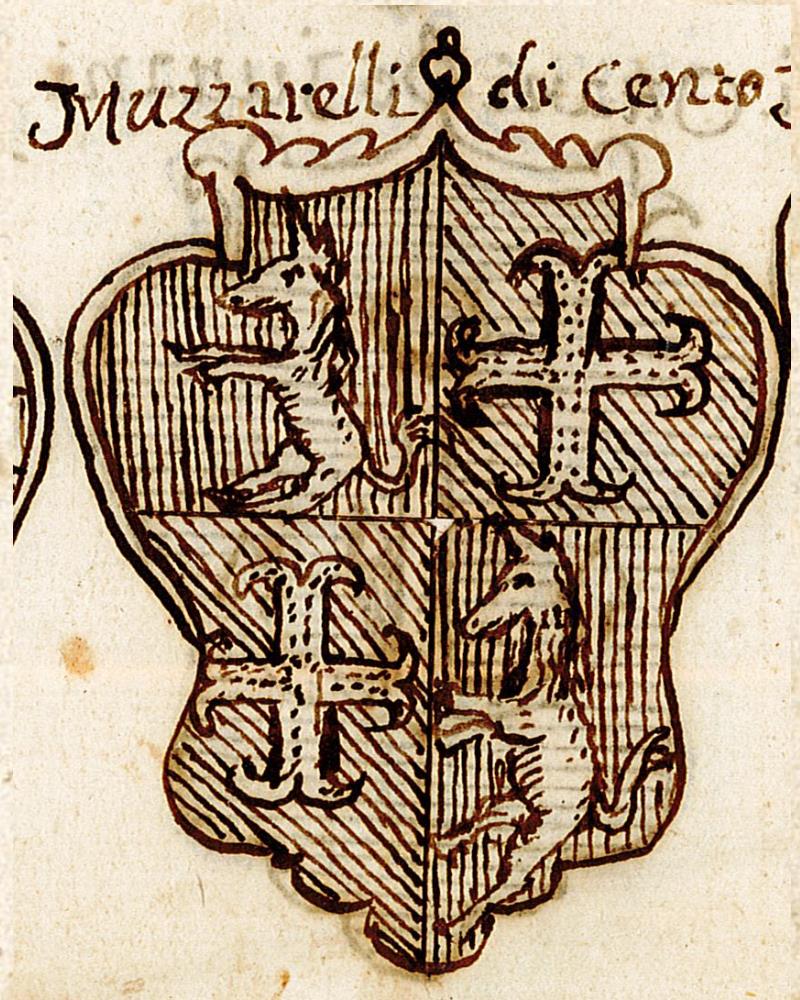 Muzzarelli di Cento